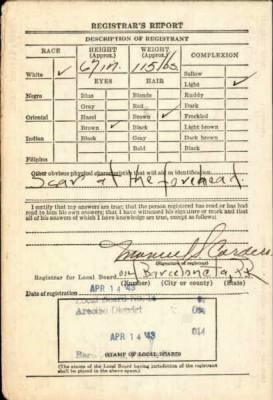 REGISTRAR'S REPORT
DESCRIPTION OF REGISTRANT
RACE HEIGHT (Approx.) WEIGHT (Approx.) COMPLEXION
67 in. 115 lbs
White ✓ Sallow
EYES HAIR Light ✓
Negro Blue Blonde Ruddy
Gray Red Dark
Oriental Hazel Brown ✓ Freckled
Brown ✓ Black Light brown
Indian Black Gray Dark brown
Bald Black
Filipino
Other obvious physical characteristics that will aid in identification
Scar at the forehead.
I certify that my answers are true; that the person registered has read or has had
read to him his own answers; that I have witnessed his signature or mark and that all
of his answers of which I have knowledge are true, except as follows:
Manuel
(Signature of registrar)
Registrar for Local Board Barceloneta, P.R.
(Number) (City or county) (State)
Date of registration APR 14 '43
Local Board No.
Arecibo District
APR 14 '43 014
Bar
(STAMP OF LOCAL BOARD)
(The stamp of the Local Board having jurisdiction of the registrant
shall be placed in the above space.)